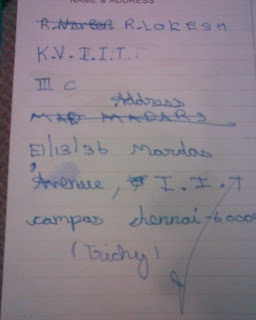 NAME & ADDRESS
R. LOKESH
K.V.I.I.T
III C
Address
MADARS
E1/13/36 Mardas
Avenue, I.I.T
campas chennai-6000
(Trichy)